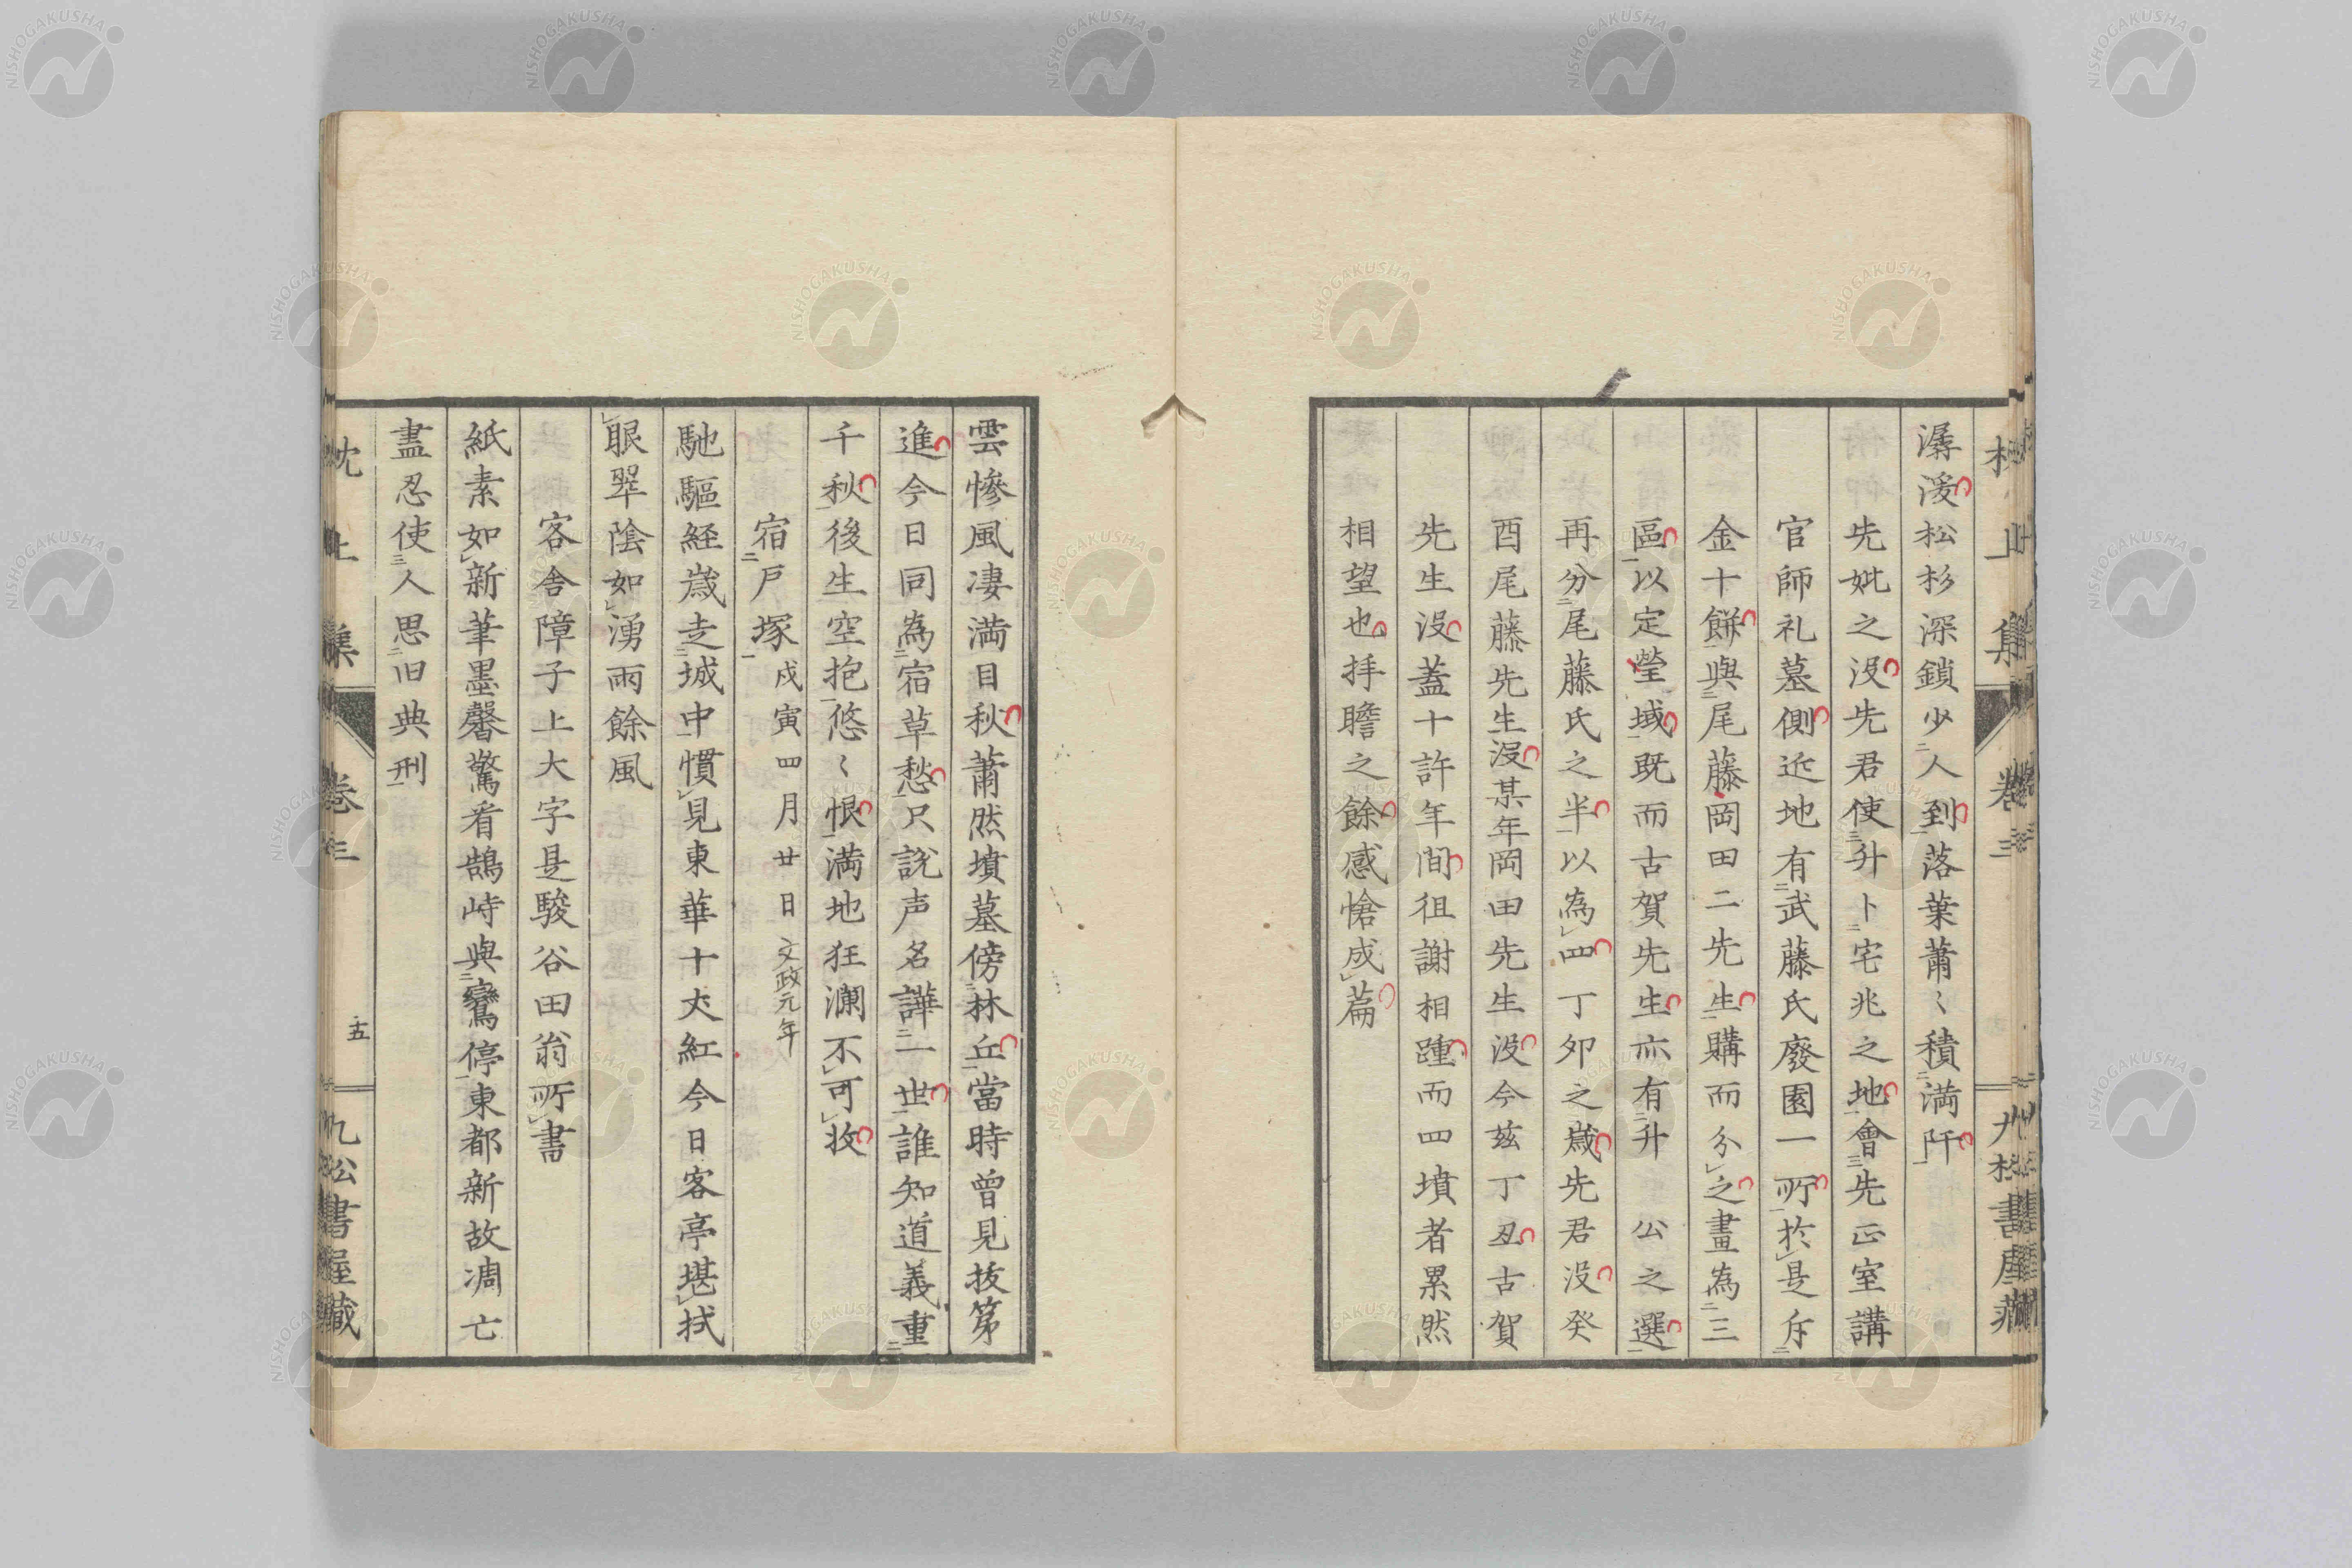 潺湲松杉深鎖少人到落葉蕭〻積満阡
先妣之没先君使升卜宅兆之地會先正室講
官師礼墓側近地有武藤氏廢園一所於是斥
金十餅與尾藤岡田二先生購而分之畫為三
區以定塋域既而古賀先生亦有升公之選
再分尾藤氏之半以為四丁夘之歳先君没癸
酉尾藤先生没某年岡田先生没今茲丁丑古賀
先生没蓋十許年間徂謝相踵而四墳者累然
相望也拝瞻之餘感愴成篇
雲惨風凄満目秋蕭然墳墓傍林丘當時曽見抜第
進今日同為宿草愁只說声名譁一世誰知道義重
千秋後生空抱悠〻恨満地狂瀾不可收
宿戸塚 戍寅四月廿日 文政元年
馳驅経歳走城中慣見東華十丈紅今日客亭堪拭
眼翠陰如湧雨餘風
客舎障子上大字是駿谷田翁所書
紙素如新筆墨馨驚看鵠峙與鸞停東都新故凋亡
盡忍使人思旧典刑
枕上集 卷三 十五 九松書屋藏